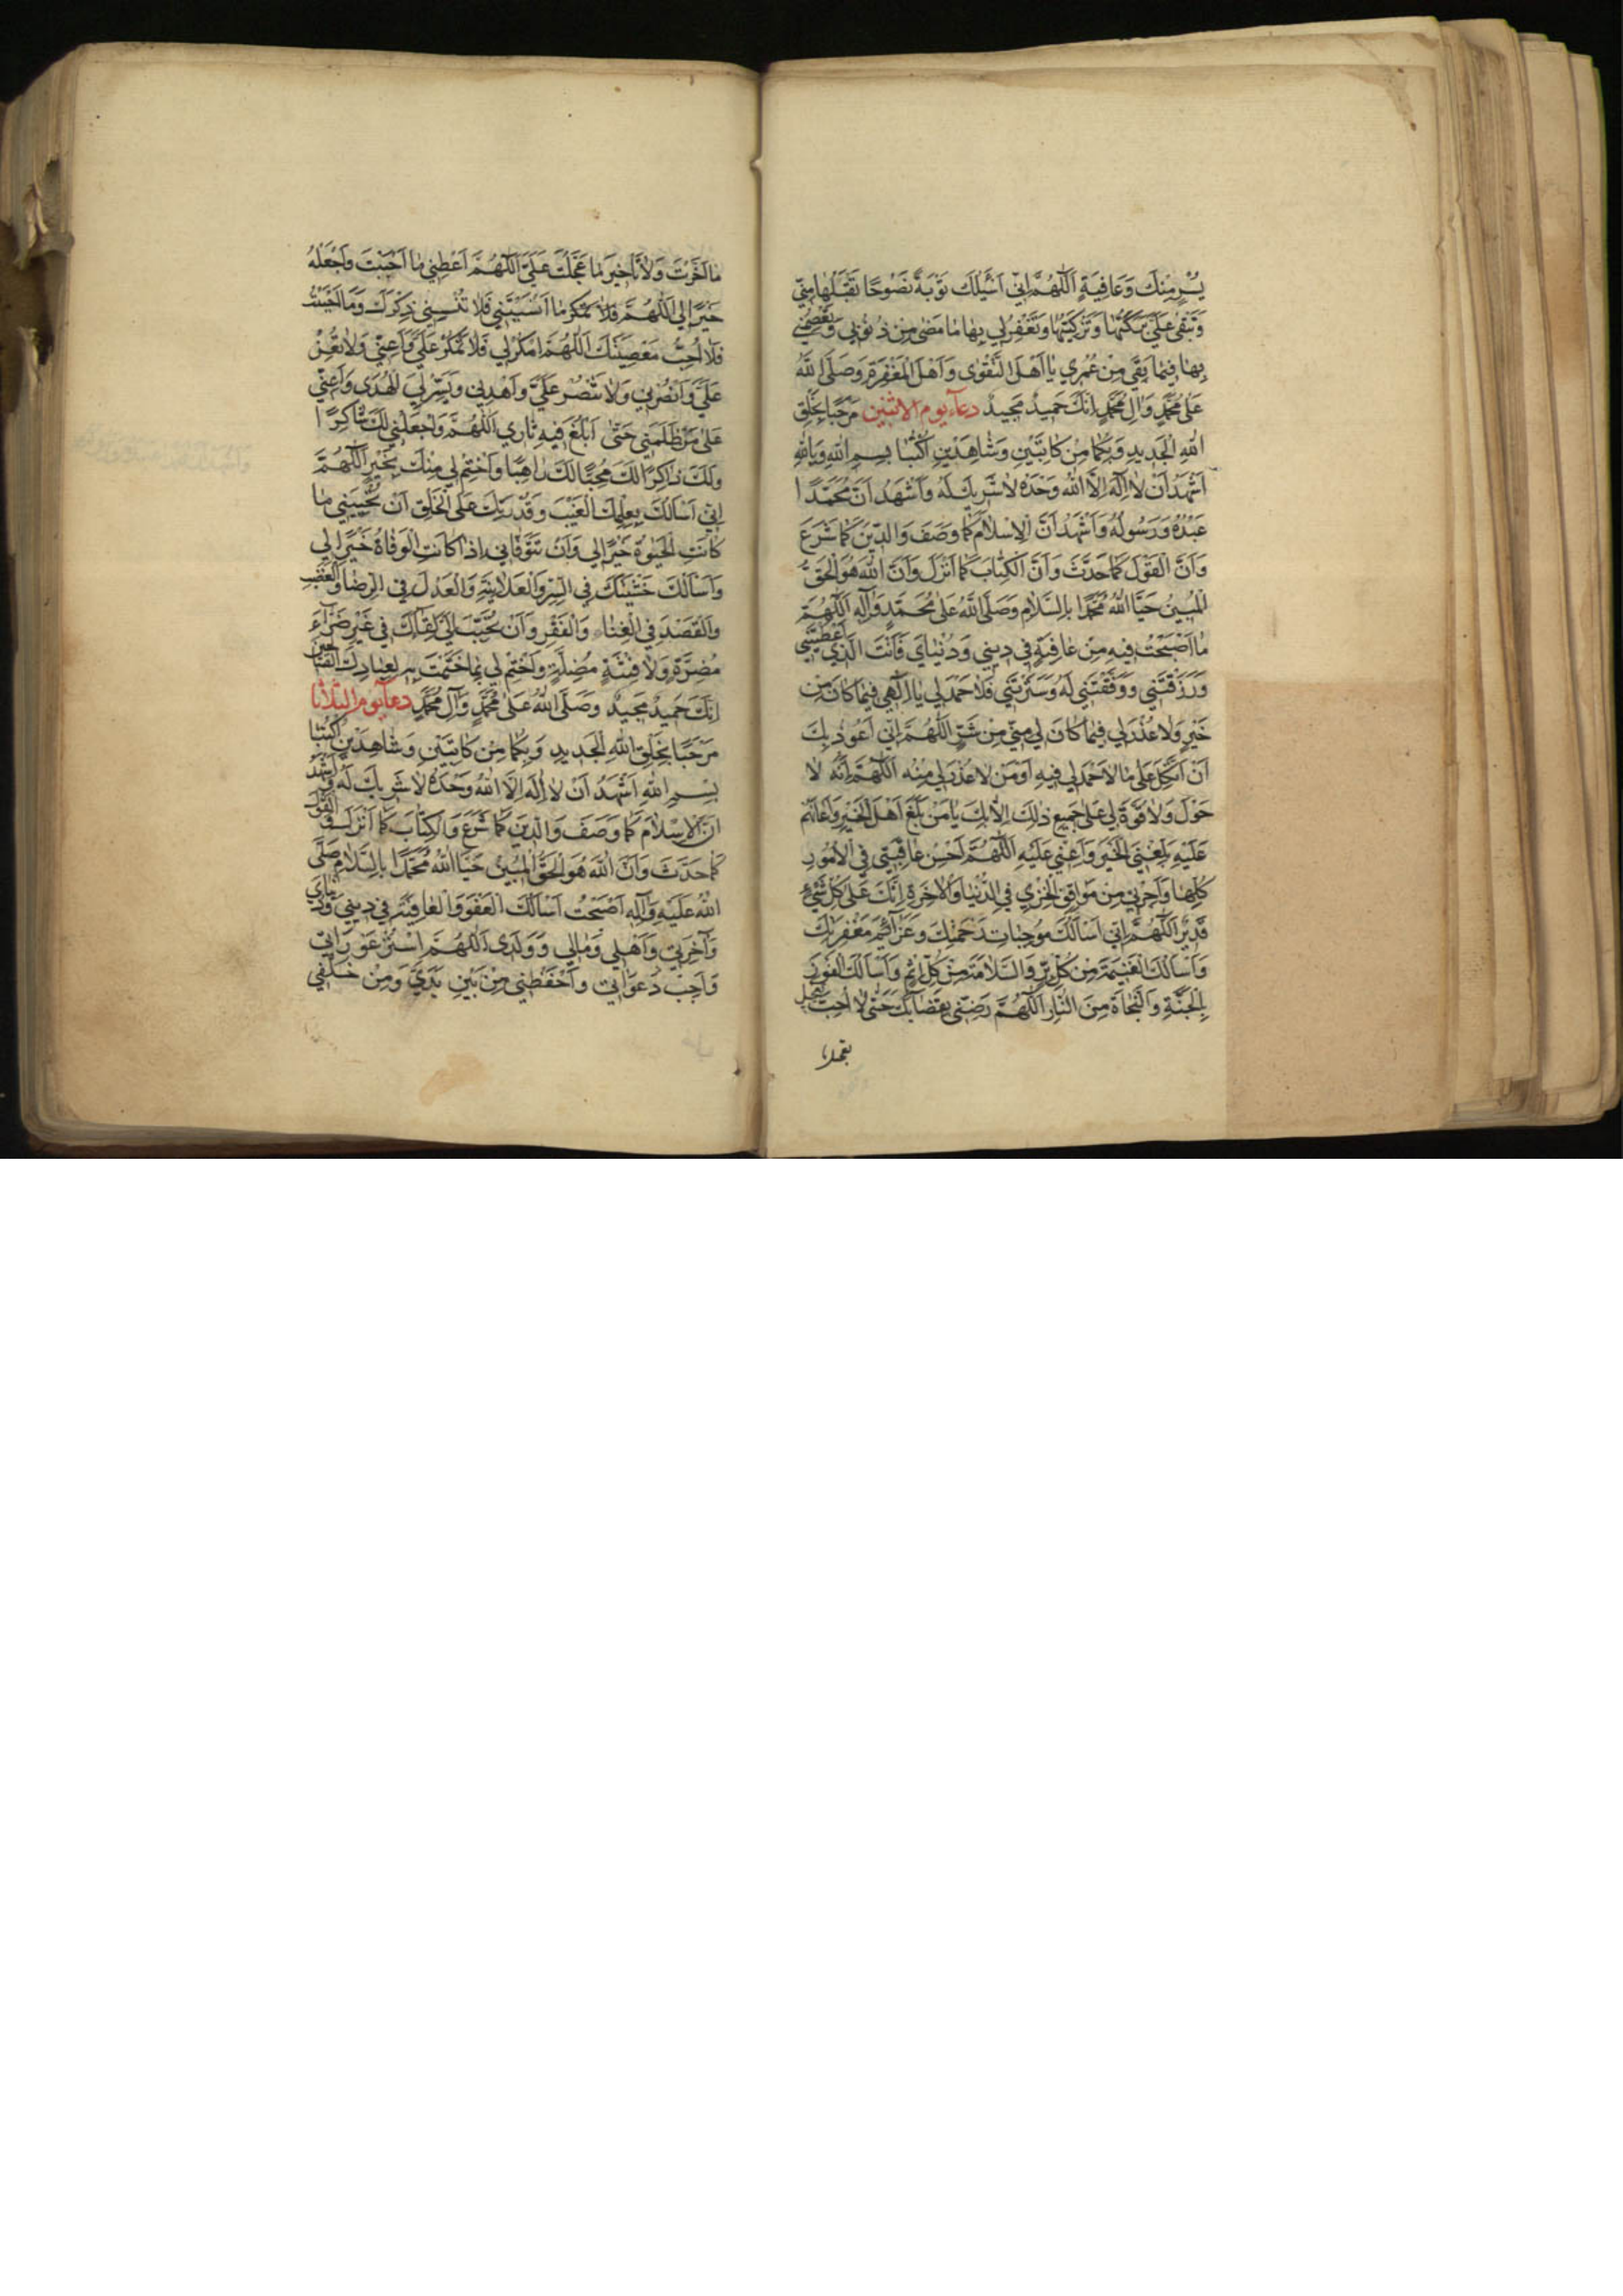 يُسْرٍ مِنْكَ وَعَافِيَةٍ اَللّٰهُمَّ اِنّي اَسْئَلُكَ تَوْبَةً نَصُوحًا تَقَبَّلُهَا مِنّي
وَتَبْقىٰ عَلَيَّ بَرَكَتُهَا وَتَزْكِيَتُهَا وَتَغْفِرُ لي بِهَا مَا مَضىٰ مِنْ ذُنُوبي وَتَعْصِمُني
بِهَا فيمَا بَقِيَ مِنْ عُمُري يَا اَهْلَ التَّقْوىٰ وَاَهْلَ الْمَغْفِرَةِ وَصَلَّى اللّٰهُ
عَلىٰ مُحَمَّدٍ وَآلِ مُحَمَّدٍ اِنَّكَ حَميدٌ مَجيدٌ دعاء يوم الاثنين مَرْحَبًا بِخَلْقِ
اللّٰهِ الْجَديدِ وَبِكُمَا مِنْ كَاتِبَيْنِ وَشَاهِدَيْنِ اُكْتُبَا بِسْمِ اللّٰهِ وَبِاللّٰهِ
اَشْهَدُ اَنْ لَا اِلٰهَ اِلَّا اللّٰهُ وَحْدَهُ لَا شَرِيكَ لَهُ وَاَشْهَدُ اَنَّ مُحَمَّدًا
عَبْدُهُ وَرَسُولُهُ وَاَشْهَدُ اَنَّ الْاِسْلَامَ كَمَا وَصَفَ وَالدّينَ كَمَا شَرَعَ
وَاَنَّ الْقَوْلَ كَمَا حَدَّثَ وَاَنَّ الْكِتَابَ كَمَا اَنْزَلَ وَاَنَّ اللّٰهَ هُوَ الْحَقُّ
الْمُبينُ حَيَّا اللّٰهُ مُحَمَّدًا بِالسَّلَامِ وَصَلَّى اللّٰهُ عَلىٰ مُحَمَّدٍ وَآلِهِ اَللّٰهُمَّ
مَا اَصْبَحْتُ فيهِ مِنْ عَافِيَةٍ في ديني وَدُنْيَايَ فَاَنْتَ الَّذي اَعْطَيْتَني
وَرَزَقْتَني وَوَفَّقْتَني لَهُ وَسَتَرْتَني فَلَا حَمْدَ لي يَا اِلٰهي فيمَا كَانَ مِنْ
خَيْرٍ وَلَا عُذْرَ لي فيمَا كَانَ لي مِنّي مِنْ شَرٍّ اَللّٰهُمَّ اِنّي اَعُوذُ بِكَ
اَنْ اَتَّكِلَ عَلىٰ مَا لَا حَمْدَ لي فيهِ اَوْ مَنْ لَا عُذْرَ لي مِنْهُ اَللّٰهُمَّ اِنَّهُ لَا
حَوْلَ وَلَا قُوَّةَ لي عَلىٰ جَميعِ ذٰلِكَ اِلَّا بِكَ يَا مَنْ بَلَّغَ اَهْلَ الْخَيْرِ وَاَعَانَهُمْ
عَلَيْهِ بَلِّغْنِي الْخَيْرَ وَاَعِنّي عَلَيْهِ اَللّٰهُمَّ اَحْسِنْ عَاقِبَتي فِي الْاُمُورِ
كُلِّهَا وَاَجِرْني مِنْ مَوَاقِفِ الْخِزْيِ فِي الدُّنْيَا وَالْآخِرَةِ اِنَّكَ عَلىٰ كُلِّ شَيْءٍ
قَديرٌ اَللّٰهُمَّ اِنّي اَسْاَلُكَ مُوجِبَاتِ رَحْمَتِكَ وَعَزَائِمَ مَغْفِرَتِكَ
وَاَسْاَلُكَ الْغَنيمَةَ مِنْ كُلِّ بِرٍّ وَالسَّلَامَةَ مِنْ كُلِّ اِثْمٍ وَاَسْاَلُكَ الْفَوْزَ
بِالْجَنَّةِ وَالنَّجَاةَ مِنَ النَّارِ اَللّٰهُمَّ رَضِّني بِقَضَائِكَ حَتّىٰ لَا اُحِبَّ تَعْجيلَ
مَا اَخَّرْتَ وَلَا تَاْخيرَ مَا عَجَّلْتَ عَلَيَّ اَللّٰهُمَّ اَعْطِني مَا اَحْبَبْتَ وَاجْعَلْهُ
خَيْرًا لي اَللّٰهُمَّ مَا اَنْسَيْتَني فَلَا تُنْسِني ذِكْرَكَ وَمَا اَحْبَبْتُ
فَلَا اُحِبُّ مَعْصِيَتَكَ اَللّٰهُمَّ امْكُرْ لي فَلَا تَمْكُرْ عَلَيَّ وَاَعِنّي وَلَا تُعِنْ
عَلَيَّ وَانْصُرْني وَلَا تَنْصُرْ عَلَيَّ وَاهْدِني وَيَسِّرْ لِيَ الْهُدىٰ وَاَعِنّي
عَلىٰ مَنْ ظَلَمَني حَتّىٰ اَبْلُغَ فيهِ ثَاري اَللّٰهُمَّ وَاجْعَلْني لَكَ شَاكِرًا
وَلَكَ ذَاكِرًا لَكَ مُحِبًّا لَكَ رَاهِبًا وَاخْتِمْ لي مِنْكَ بِخَيْرٍ اَللّٰهُمَّ
اِنّي اَسْاَلُكَ بِعِلْمِكَ الْغَيْبَ وَقُدْرَتِكَ عَلَى الْخَلْقِ اَنْ تُحْيِيَني مَا
كَانَتِ الْحَيٰوةُ خَيْرًا لي وَاَنْ تَتَوَفَّاني اِذَا كَانَتِ الْوَفَاةُ خَيْرًا لي
وَاَسْاَلُكَ خَشْيَتَكَ فِي السِّرِّ وَالْعَلَانِيَةِ وَالْعَدْلَ فِي الرِّضَا وَالْغَضَبِ
وَالْقَصْدَ فِي الْغِنَاءِ وَالْفَقْرِ وَاَنْ تُحَبِّبَ اِلَيَّ لِقَاءَكَ في غَيْرِ ضَرَّاءَ
مُضِرَّةٍ وَلَا فِتْنَةٍ مُضِلَّةٍ وَاخْتِمْ لي بِمَا خَتَمْتَ بِهِ لِعِبَادِكَ الصَّالِحينَ
اِنَّكَ حَميدٌ مَجيدٌ وَصَلَّى اللّٰهُ عَلىٰ مُحَمَّدٍ وَآلِ مُحَمَّدٍ دعاء يوم الثلاثا
مَرْحَبًا بِخَلْقِ اللّٰهِ الْجَديدِ وَبِكُمَا مِنْ كَاتِبَيْنِ وَشَاهِدَيْنِ اُكْتُبَا
بِسْمِ اللّٰهِ اَشْهَدُ اَنْ لَا اِلٰهَ اِلَّا اللّٰهُ وَحْدَهُ لَا شَرِيكَ لَهُ وَاَشْهَدُ
اَنَّ الْاِسْلَامَ كَمَا وَصَفَ وَالدّينَ كَمَا شَرَعَ وَالْكِتَابَ كَمَا اَنْزَلَ وَالْقَوْلَ
كَمَا حَدَّثَ وَاَنَّ اللّٰهَ هُوَ الْحَقُّ الْمُبينُ حَيَّا اللّٰهُ مُحَمَّدًا بِالسَّلَامِ صَلَّى
اللّٰهُ عَلَيْهِ وَآلِهِ اَصْبَحْتُ اَسْاَلُكَ الْعَفْوَ وَالْعَافِيَةَ في ديني وَدُنْيَايَ
وَآخِرَتي وَاَهْلي وَمَالي وَوَلَدي اَللّٰهُمَّ اسْتُرْ عَوْرَاتي
وَاَجِبْ دَعَوَاتي وَاحْفَظْني مِنْ بَيْنِ يَدَيَّ وَمِنْ خَلْفي